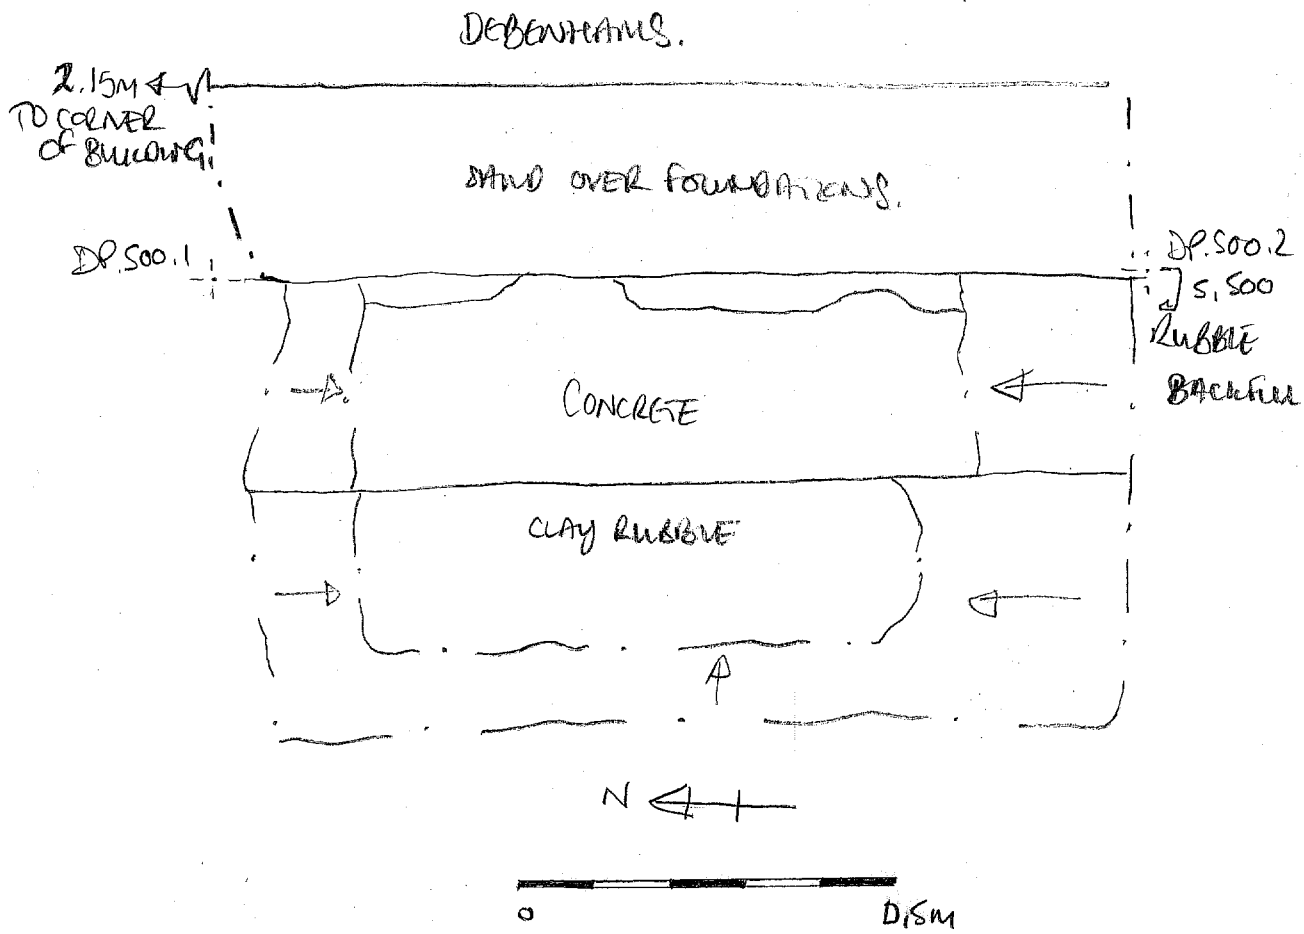 DEBENHAMS.
2.15M
TO CORNER
OF BUILDING
SAND OVER FOUNDATIONS.
DP.500.1
DP.500.2
S.500
RUBBLE
BACKFILL
CONCRETE
CLAY RUBBLE
N
0
0.5m